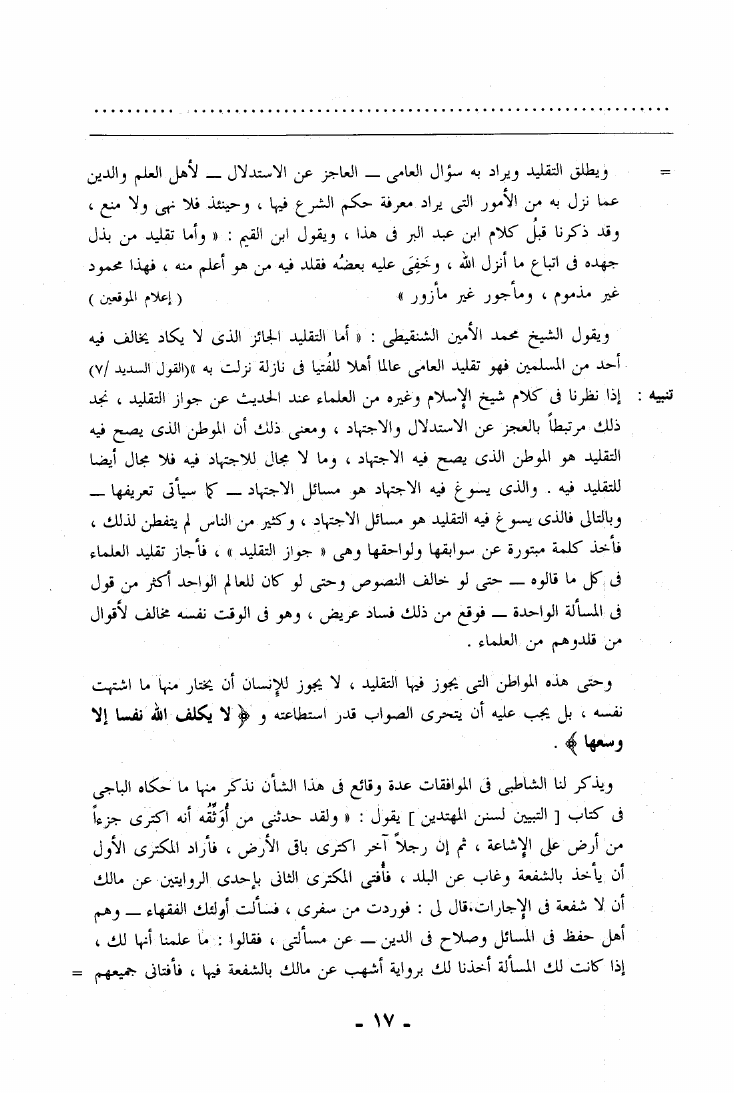 = ويطلق التقليد ويراد به سؤال العامى ــ العاجز عن الاستدلال ــ لأهل العلم والدين
عما نزل به من الأمور التى يراد معرفة حكم الشرع فيها ، وحينئذ فلا نهى ولا منع ،
وقد ذكرنا قبلُ كلام ابن عبد البر فى هذا ، ويقول ابن القيم : « وأما تقليد من بذل
جهده فى اتباع ما أنزل الله ، وخَفِىَ عليه بعضُه فقلد فيه من هو أعلم منه ، فهذا محمود
غير مذموم ، ومأجور غير مأزور » ( إعلام الموقعين )
ويقول الشيخ محمد الأمين الشنقيطى : « أما التقليد الجائز الذى لا يكاد يخالف فيه
أحد من المسلمين فهو تقليد العامى عالما أهلا للفُتيا فى نازلة نزلت به »(القول السديد /٧)
تنبيه : إذا نظرنا فى كلام شيخ الإسلام وغيره من العلماء عند الحديث عن جواز التقليد ، نجد
ذلك مرتبطاً بالعجز عن الاستدلال والاجتهاد ، ومعنى ذلك أن الموطن الذى يصح فيه
التقليد هو الموطن الذى يصح فيه الاجتهاد ، وما لا مجال للاجتهاد فيه فلا مجال أيضا
للتقليد فيه . والذى يسوغ فيه الاجتهاد هو مسائل الاجتهاد ــ كما سيأتى تعريفها ــ
وبالتالى فالذى يسوغ فيه التقليد هو مسائل الاجتهاد ، وكثير من الناس لم يتفطن لذلك ،
فأخذ كلمة مبتورة عن سوابقها ولواحقها وهى « جواز التقليد » ، فأجاز تقليد العلماء
فى كل ما قالوه ــ حتى لو خالف النصوص وحتى لو كان للعالم الواحد أكثر من قول
فى المسألة الواحدة ــ فوقع من ذلك فساد عريض ، وهو فى الوقت نفسه مخالف لأقوال
من قلدوهم من العلماء .
وحتى هذه المواطن التى يجوز فيها التقليد ، لا يجوز للإنسان أن يختار منها ما اشتهت
نفسه ، بل يجب عليه أن يتحرى الصواب قدر استطاعته و ﴿ لا يكلف الله نفسا إلا
وسعها ﴾ .
ويذكر لنا الشاطبى فى الموافقات عدة وقائع فى هذا الشأن نذكر منها ما حكاه الباجى
فى كتاب [ التبيين لسنن المهتدين ] يقول : « ولقد حدثنى من أُوَثِّقُه أنه اكترى جزءاً
من أرض على الإشاعة ، ثم إن رجلاً آخر اكترى باقى الأرض ، فأراد المكترى الأول
أن يأخذ بالشفعة وغاب عن البلد ، فأُفتى المكترى الثانى بإحدى الروايتين عن مالك
أن لا شفعة فى الإجارات.قال لى : فوردت من سفرى ، فسألت أولئك الفقهاء ــ وهم
أهل حفظ فى المسائل وصلاح فى الدين ــ عن مسألتى ، فقالوا : ما علمنا أنها لك ،
إذا كانت لك المسألة أخذنا لك برواية أشهب عن مالك بالشفعة فيها ، فأفتانى جميعهم =
- ١٧ -